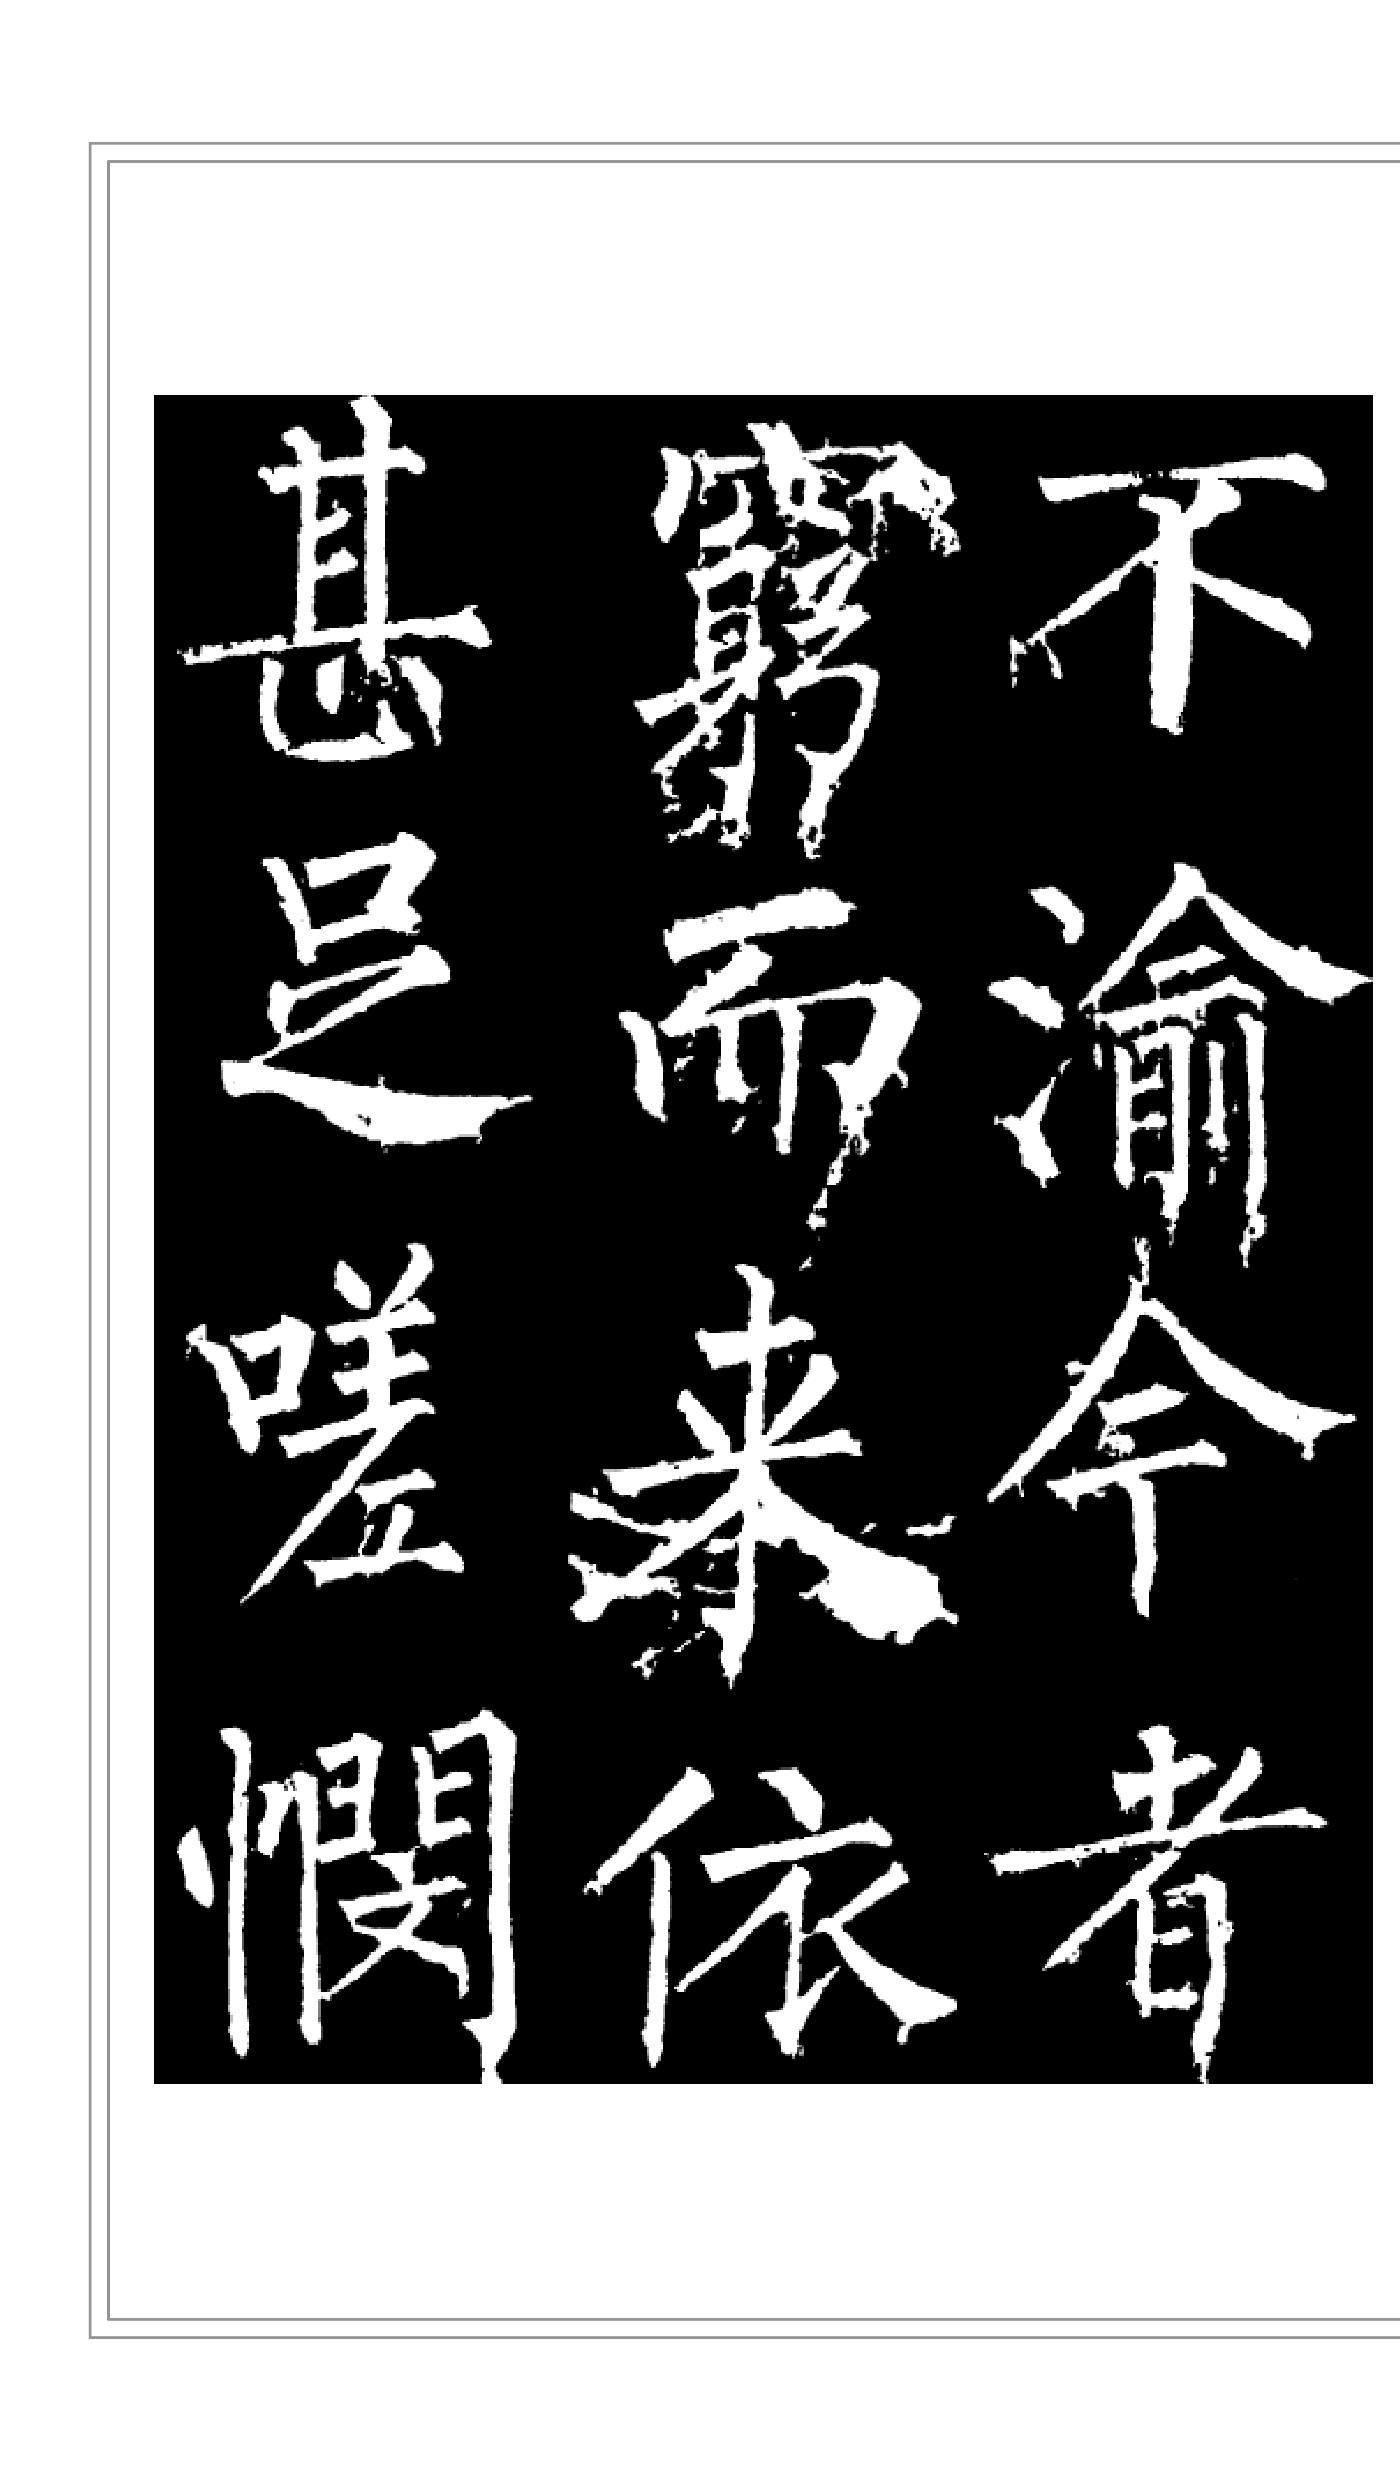 不渝今者
窮而来依
甚足嗟憫